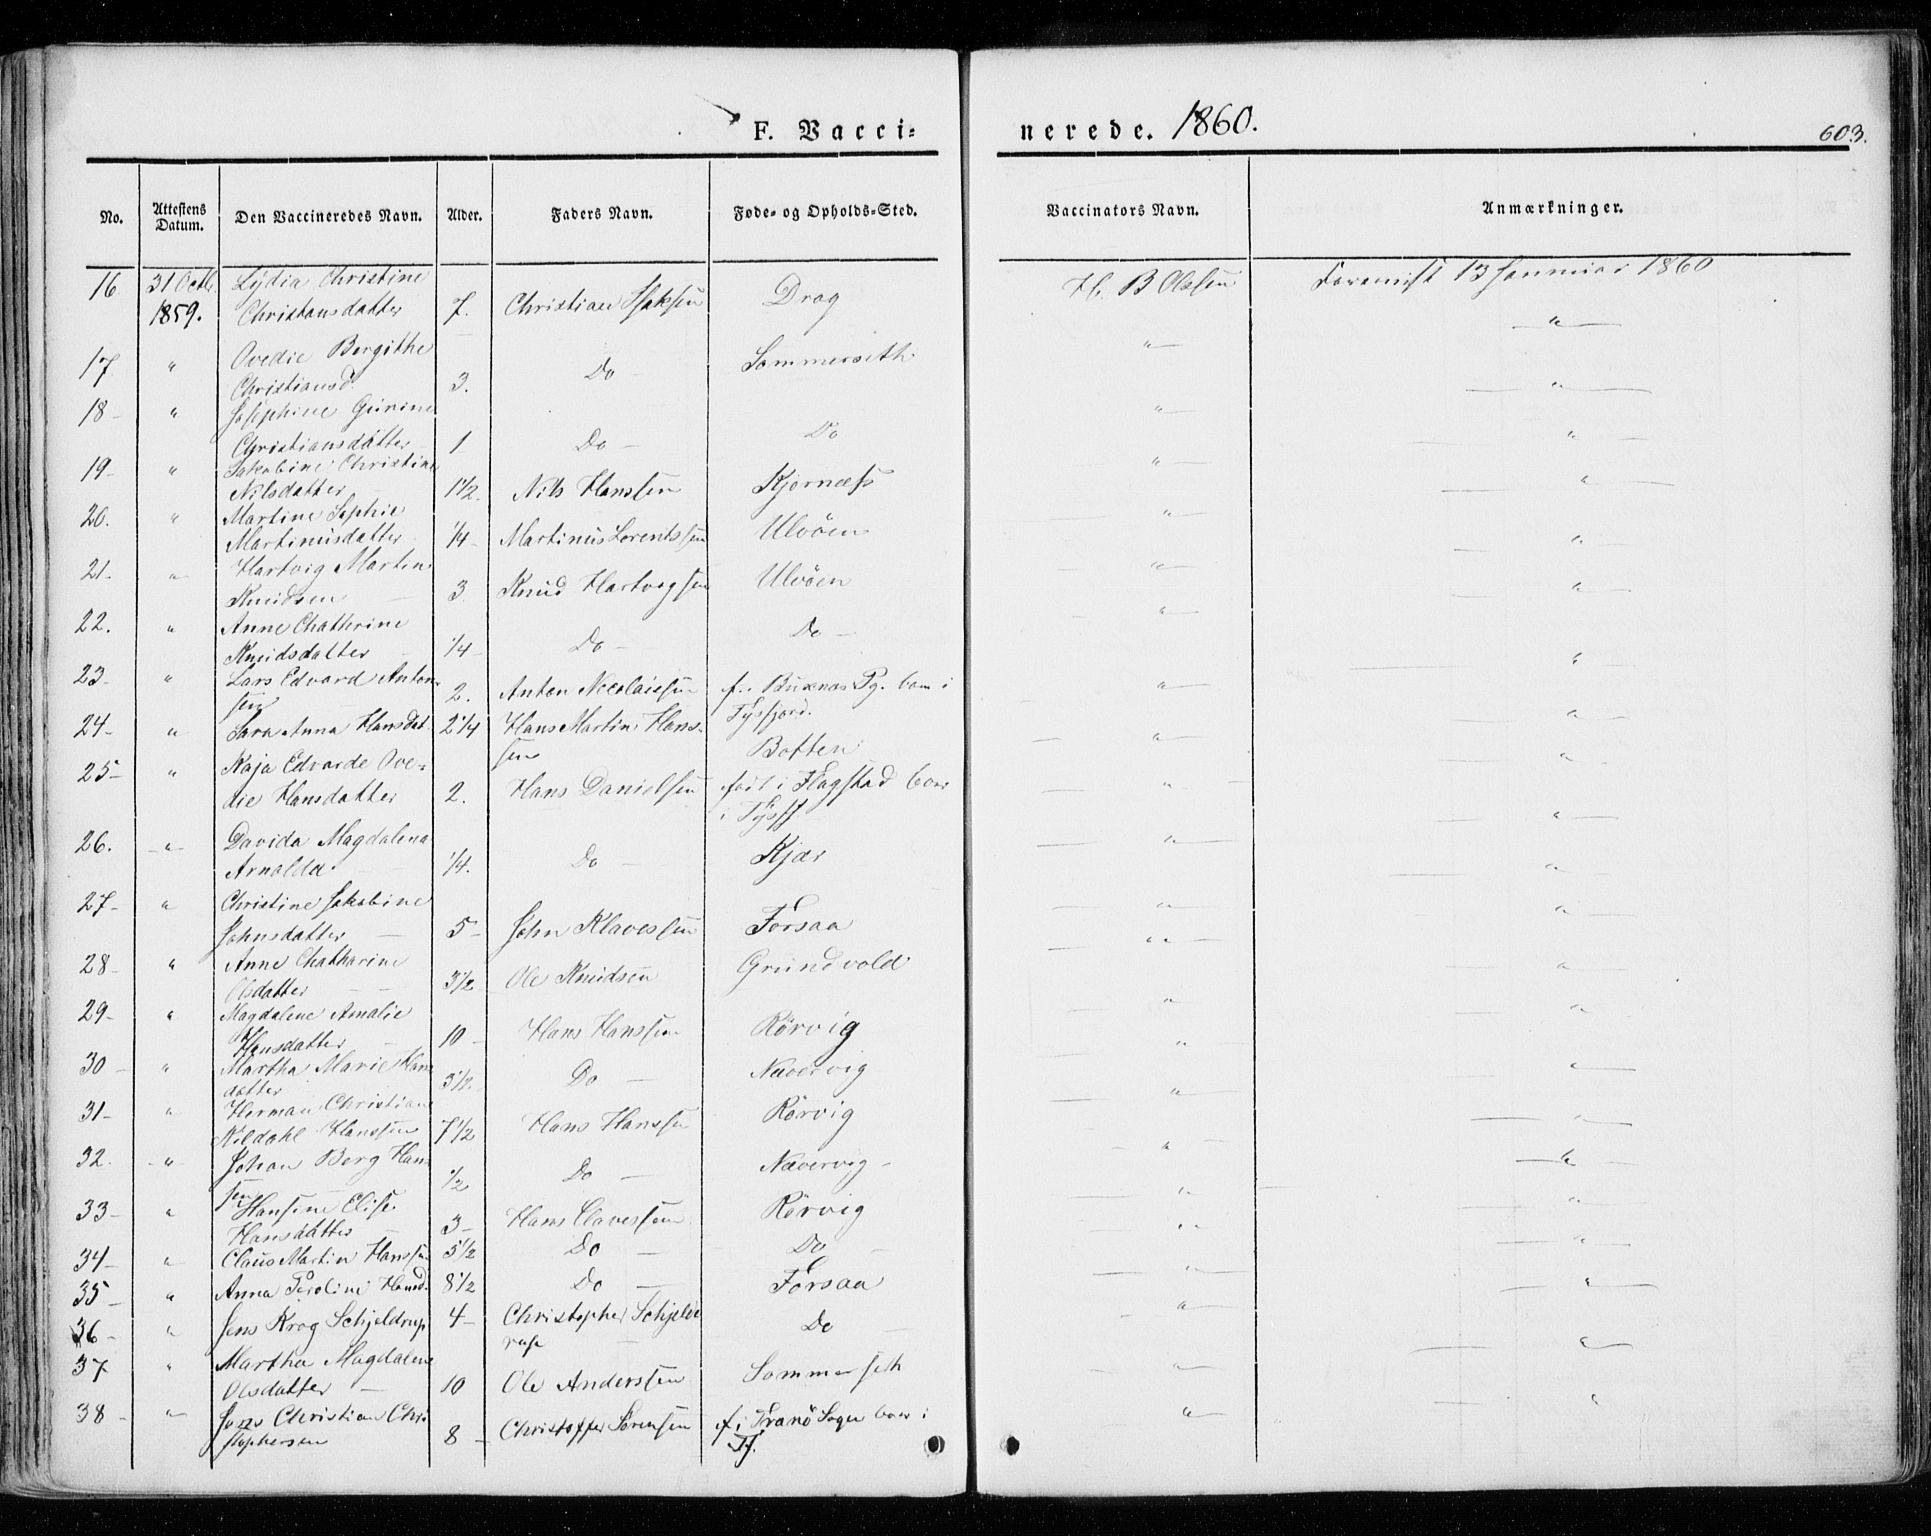 F. Vacci=
nerede. 1860.
603.
No. Attestens Datum. Den Vaccineredes Navn. Alder. Faders Navn. Føde- og Opholds-Sted. Vaccinators Navn. Anmærkninger.
16 31 Octb. Lydia Christine
1859. Christansdatter 7. Christian Isaksen Drag H. B Olssen Foreviist 13 Januar 1860
17 " Ovedie Bergithe
Christiansd. 3. Do Sommerseth " "
18 - " Josephine Gurine
Christiansdatter 1 Do - Do " "
19 - " Jakobine Christine
Nilsdatter 1 1/2. Nils Hanssen Kjørnæss " "
20. " Martine Sophie
Martinusdatter 1/4 - Martinus Lorentssen Ulvöen " "
21. " Hartvig Martin
Knudsen 3. Knud Hartvigsen Ulvöen " "
22. " Anne Chathrine
Knudsdatter 1/4 - Do - Do - " "
23 - " Lars Edvard Anton
sen 2. Anton Nicolaissen f. i Buxnæs Pg. boen i
Tysfjord. " "
24 - " Sara Anna Hansdat 2 1/4 Hans Martin Hans-
sen Botten " "
25 - " Kaja Edvarde Ove-
die Hansdatter 2. Hans Danielsen født i Flagstad boer
i Tysf " "
26. " Davida Magdalena
Arnolda 1/4. Do - Kjær " "
27 - " Christine Jakobine
Johnsdatter - 5 - John Klavessen Forsaa " "
28 - " Anne Chatharine
Olsdatter 3 1/2 Ole Knudsen Grundvold " "
29 - " Magdalene Amalie
Hansdatter 10 - Hans Hanssen Rörvig " "
30 - " Martha Marie Han
datter 3 1/2. Do - Nævervig " "
31 - " Herman Christian
Nildahl Hanssen 7 1/2 Hans Hanssen Rörvig " "
32. " Johan Berg Hans
sen 1/2 Do - Nævervig - " "
33 - " Hansine Elise
Hansdatter 3 - Hans Clavessen Rörvig " "
34 - " Claus Martin Hanssen 5 1/2 Do - Do - " "
35 - " Anna Peroline Hansd. 8 1/2 Do - Forsaa " "
36 - " Jens Krog Schjeldrup 4 - Christopher Schjelde
rup Do - " "
37 " Martha Magdalene
Olsdatter - 10 Ole Anderssen Sommerseth " "
38 - " Jens Christian Chri
stophersen 8 - Christoffer Sørensen f. i Tranö Sogn boer i
Tf. " "